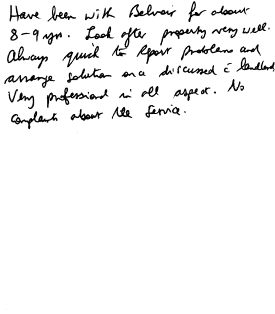 Have been with Belvoir for about
8-9 yrs. Look after property very well.
Always quick to report problems and
arrange solution once discussed c̄ landlord
Very professional in all aspect. No
complaints about the service.